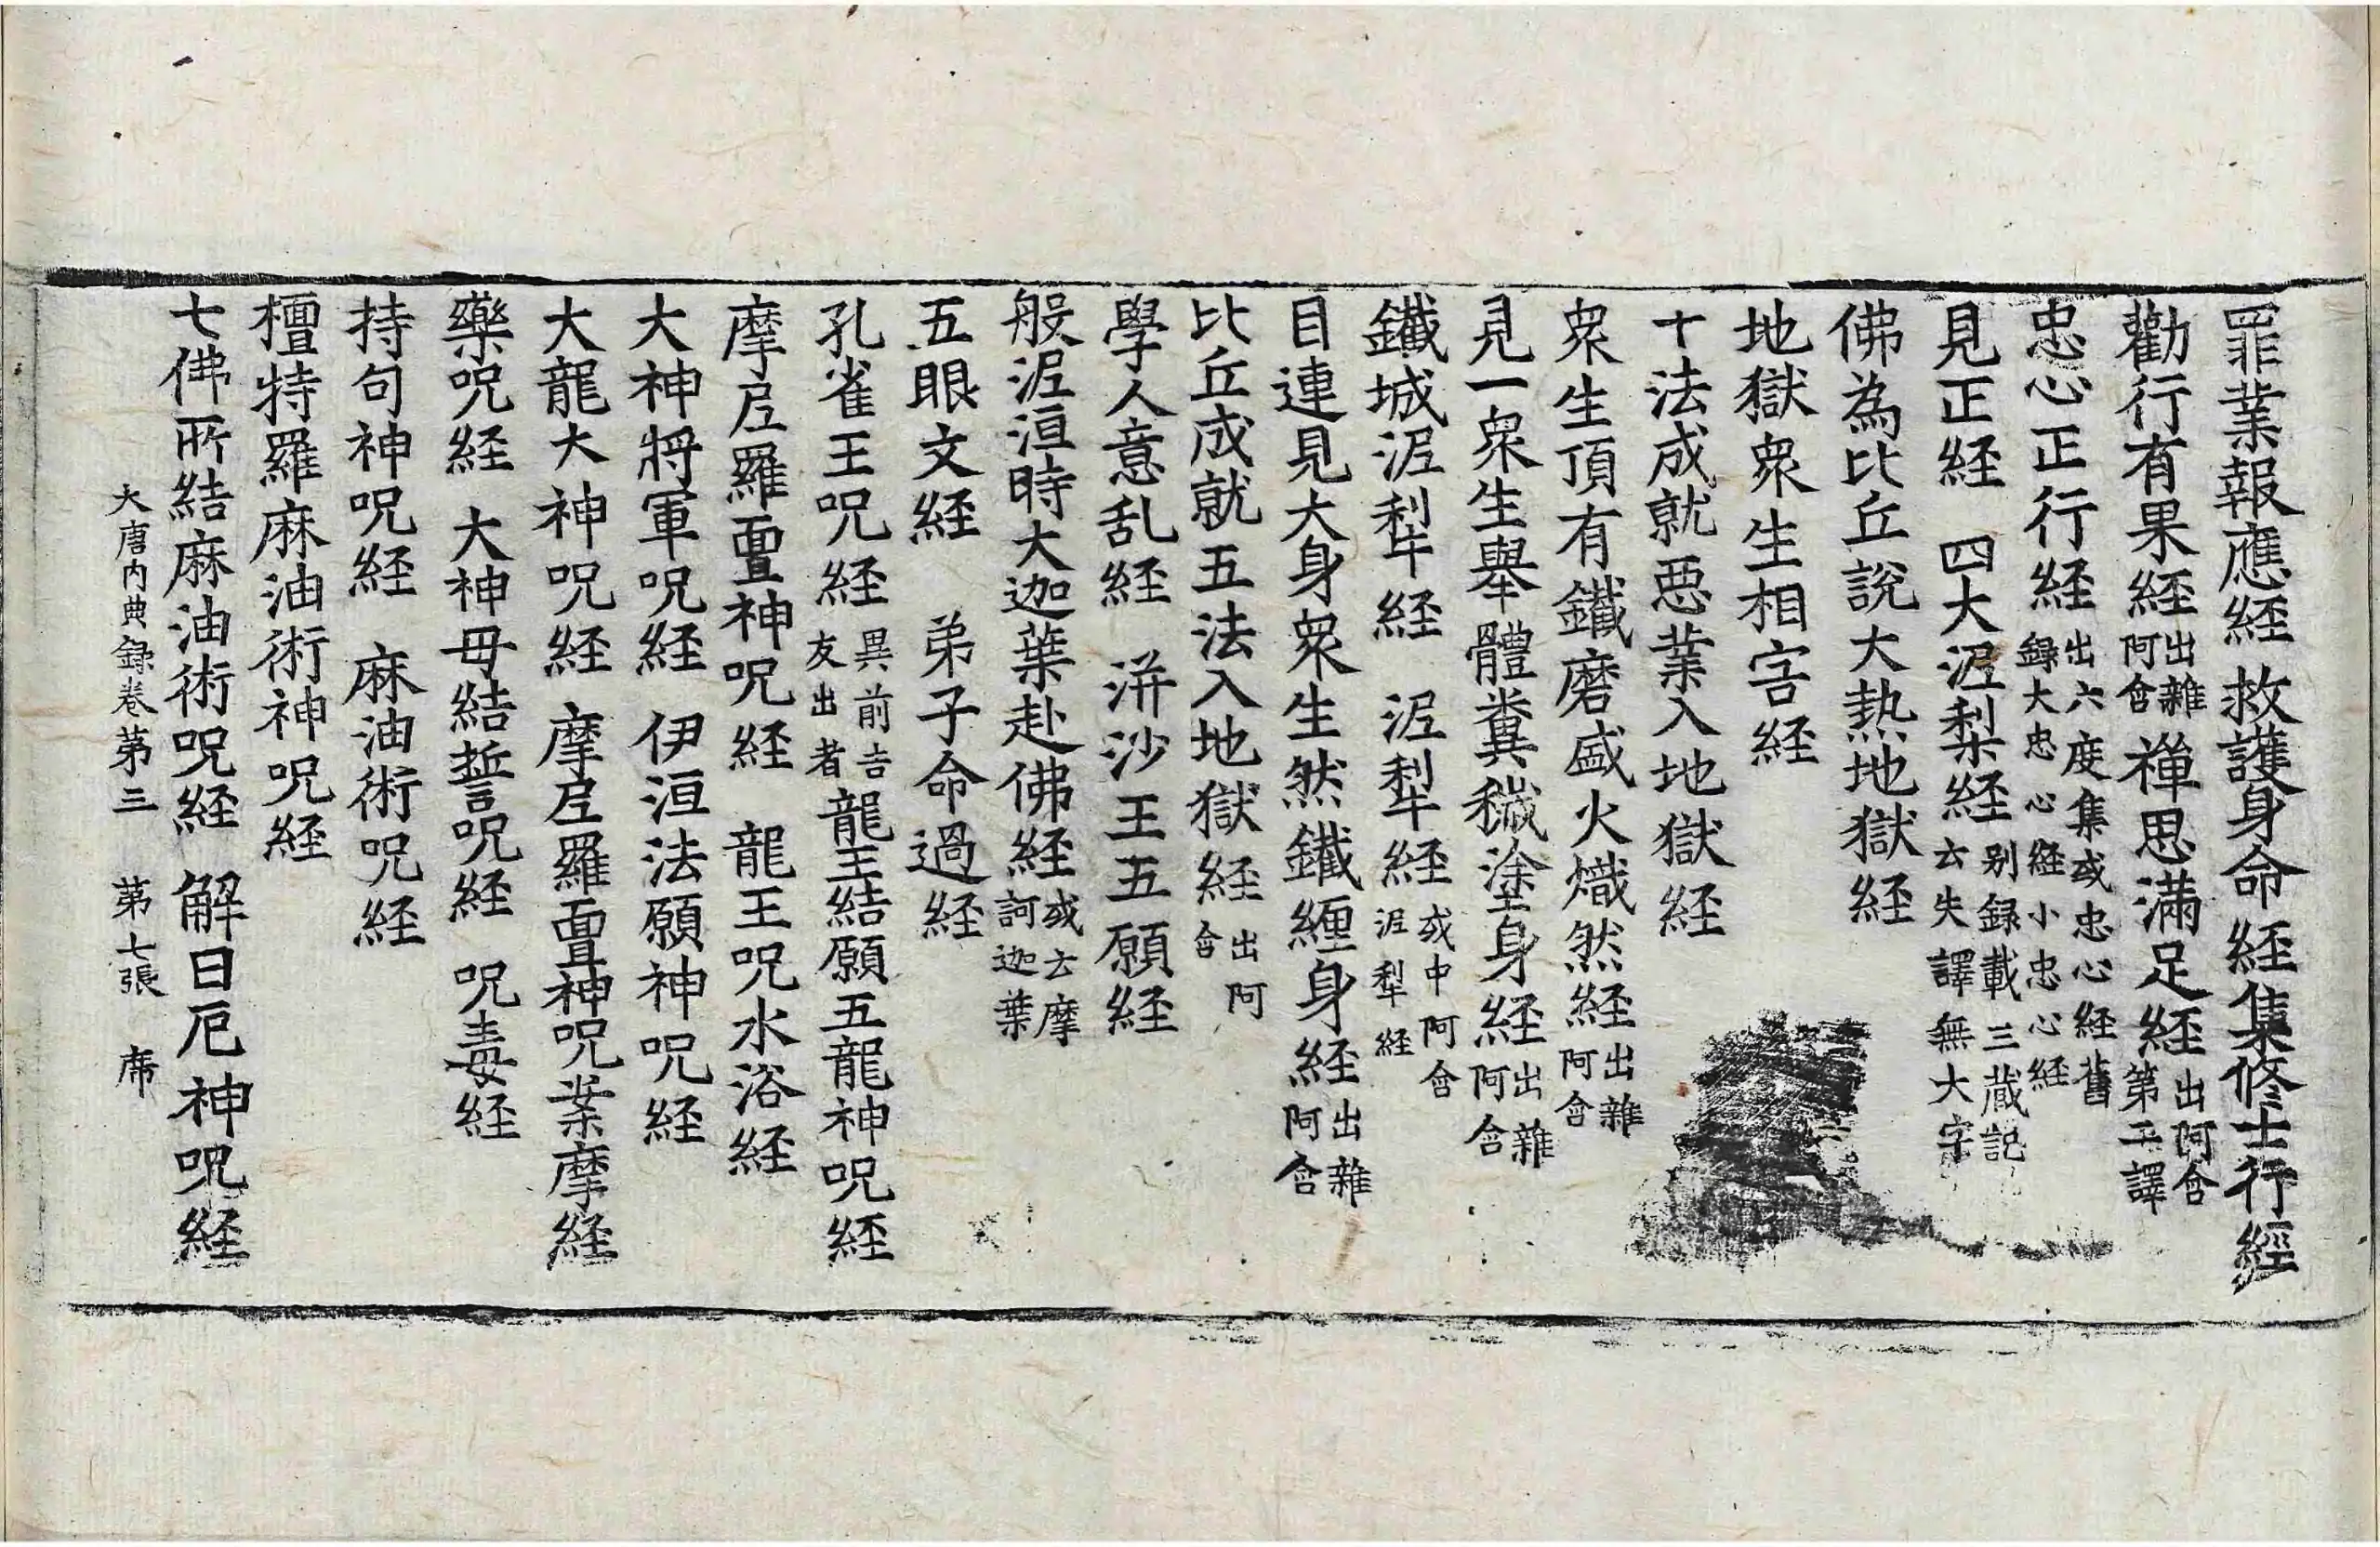 罪業報應経 救護身命経 集修士行經
勸行有果経出雜阿含 禪思滿足経出阿含第二譯
忠心正行経出六度集或忠心経舊録大忠心経小忠心経
見正経 四大泥梨経别録載三蔵記云失譯無大字
佛為比丘說大熱地獄経
地獄衆生相害経
十法成就惡業入地獄経
衆生頂有鐵磨盛火熾然経出雜阿含
見一衆生舉體糞穢塗身経出雜阿含
鐵城泥犁経 泥犁経或中阿含泥犁経
目連見大身衆生然鐵纒身経出雜阿含
比丘成就五法入地獄経出阿含
學人意乱経 洴沙王五願経
般泥洹時大迦葉赴佛経或云摩訶迦葉
五眼文経 弟子命過経
孔雀王呪経異前吉友出者 龍王結願五龍神呪経
摩尼羅亶神呪経 龍王呪水浴経
大神將軍呪経 伊洹法願神呪経
大龍大神呪経 摩尼羅亶神呪案摩経
藥呪経 大神母結誓呪経 呪毒経
持句神呪経 麻油術呪経
檀特羅麻油術神呪経
七佛所結麻油術呪経 解日厄神呪経
大唐内典録卷第三 第七張 席